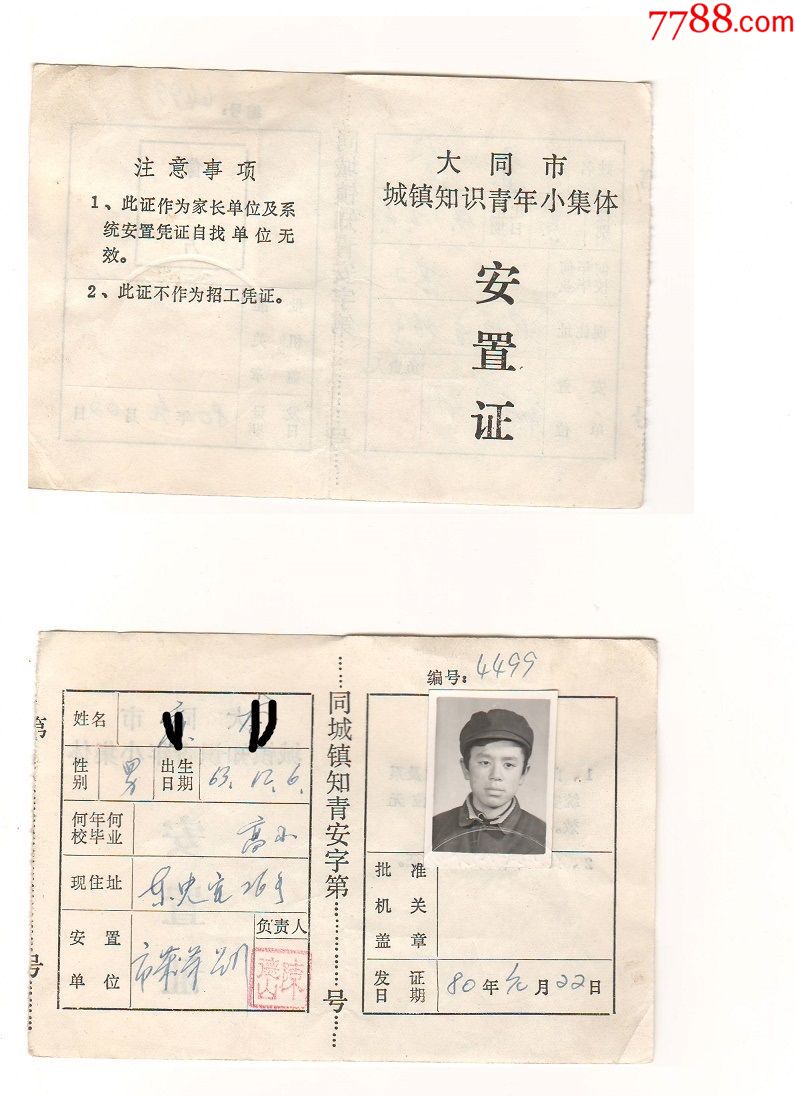 7788.com
注意事项
1、此证作为家长单位及系
统安置凭证自找单位无
效。
2、此证不作为招工凭证。
大同市
城镇知识青年小集体
安
置
证
第
号
姓名
性别 男 出生日期 63.12.6.
何年何校毕业 高小
现住址 26号
安置单位 市
负责人
陈德山
同城镇知青安字第 号
编号：4499
批准机关盖章
发证日期 80年元月22日